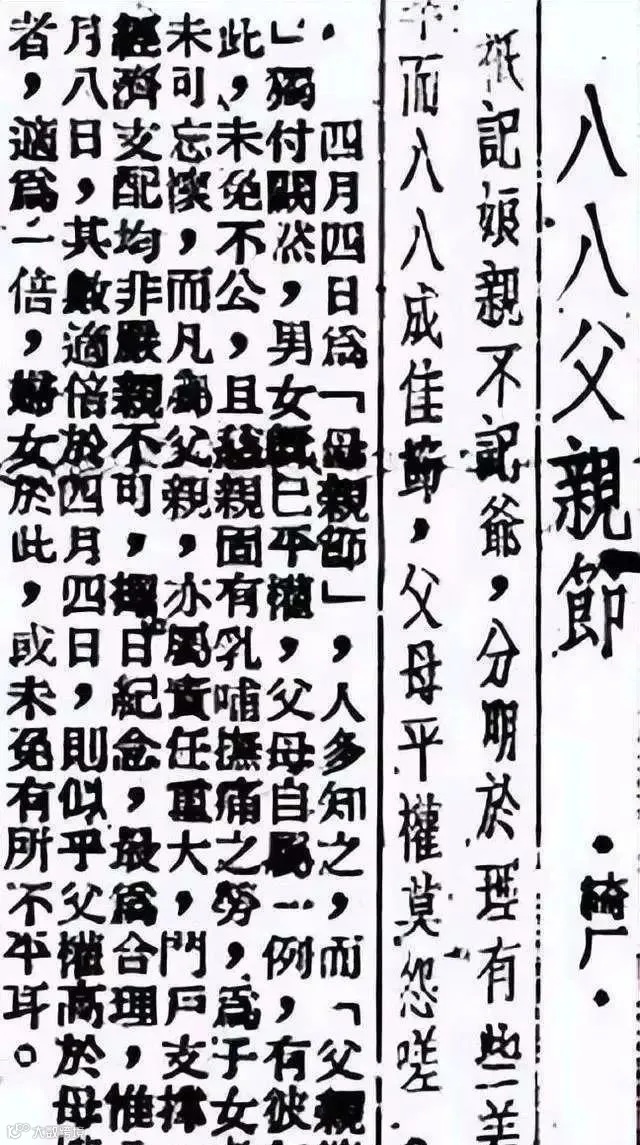 八八父親節
·綺厂·
祇記娘親不記爺，分明於理有些差
而八八成佳節，父母平權莫怨嗟
四月四日爲「母親節」，人多知之，而「父親
」獨付闕然，男女既已平權，父母自屬一例，有彼
此，未免不公，且慈親固有乳哺撫痛之勞，爲子女
未可忘懷，而凡爲父親，亦屬責任重大，門戶支撐
經濟支配均非嚴親不可，擇日紀念，最爲合理，惟
月八日，其數適倍於四月四日，則似乎父權高於母
者，適爲一倍，婦女於此，或未免有所不平耳。